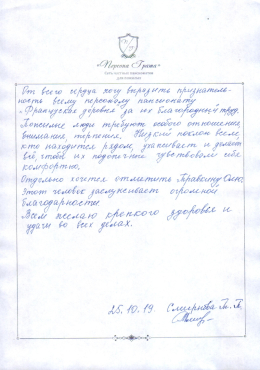 «Первая Грата»
Сеть частных пансионатов
От всего сердца хочу выразить признатель-
ность всему персоналу пансионата
«Французская деревня» за их благородный труд.
Пожилые люди требуют особого отношения,
внимания терпения. Низкий поклон всем,
кто находится рядом, ухаживает и делает
всё, чтобы их подопечные чувствовали себя
комфортно.
Отдельно хочется отметить Олю.
Этот человек заслуживает огромной
благодарности.
Всем желаю крепкого здоровья и
удачи во всех делах.
25.10.19. Смирнова